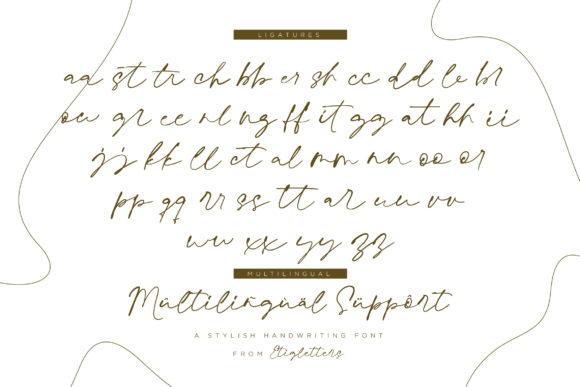 LIGATURES
aa st tr ch bb er sh cc dd le br
ow gr ee rl ng ff it gg at hh ii
jj kk ll ct al mm nn oo or
pp qq rr ss tt ar uu vv
ww xx yy zz
MULTILINGUAL
Múltilingüäl Süppôrt
A STYLISH HANDWRITING FONT
FROM Etigletters